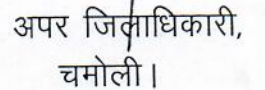 अपर जिलाधिकारी,
चमोली।